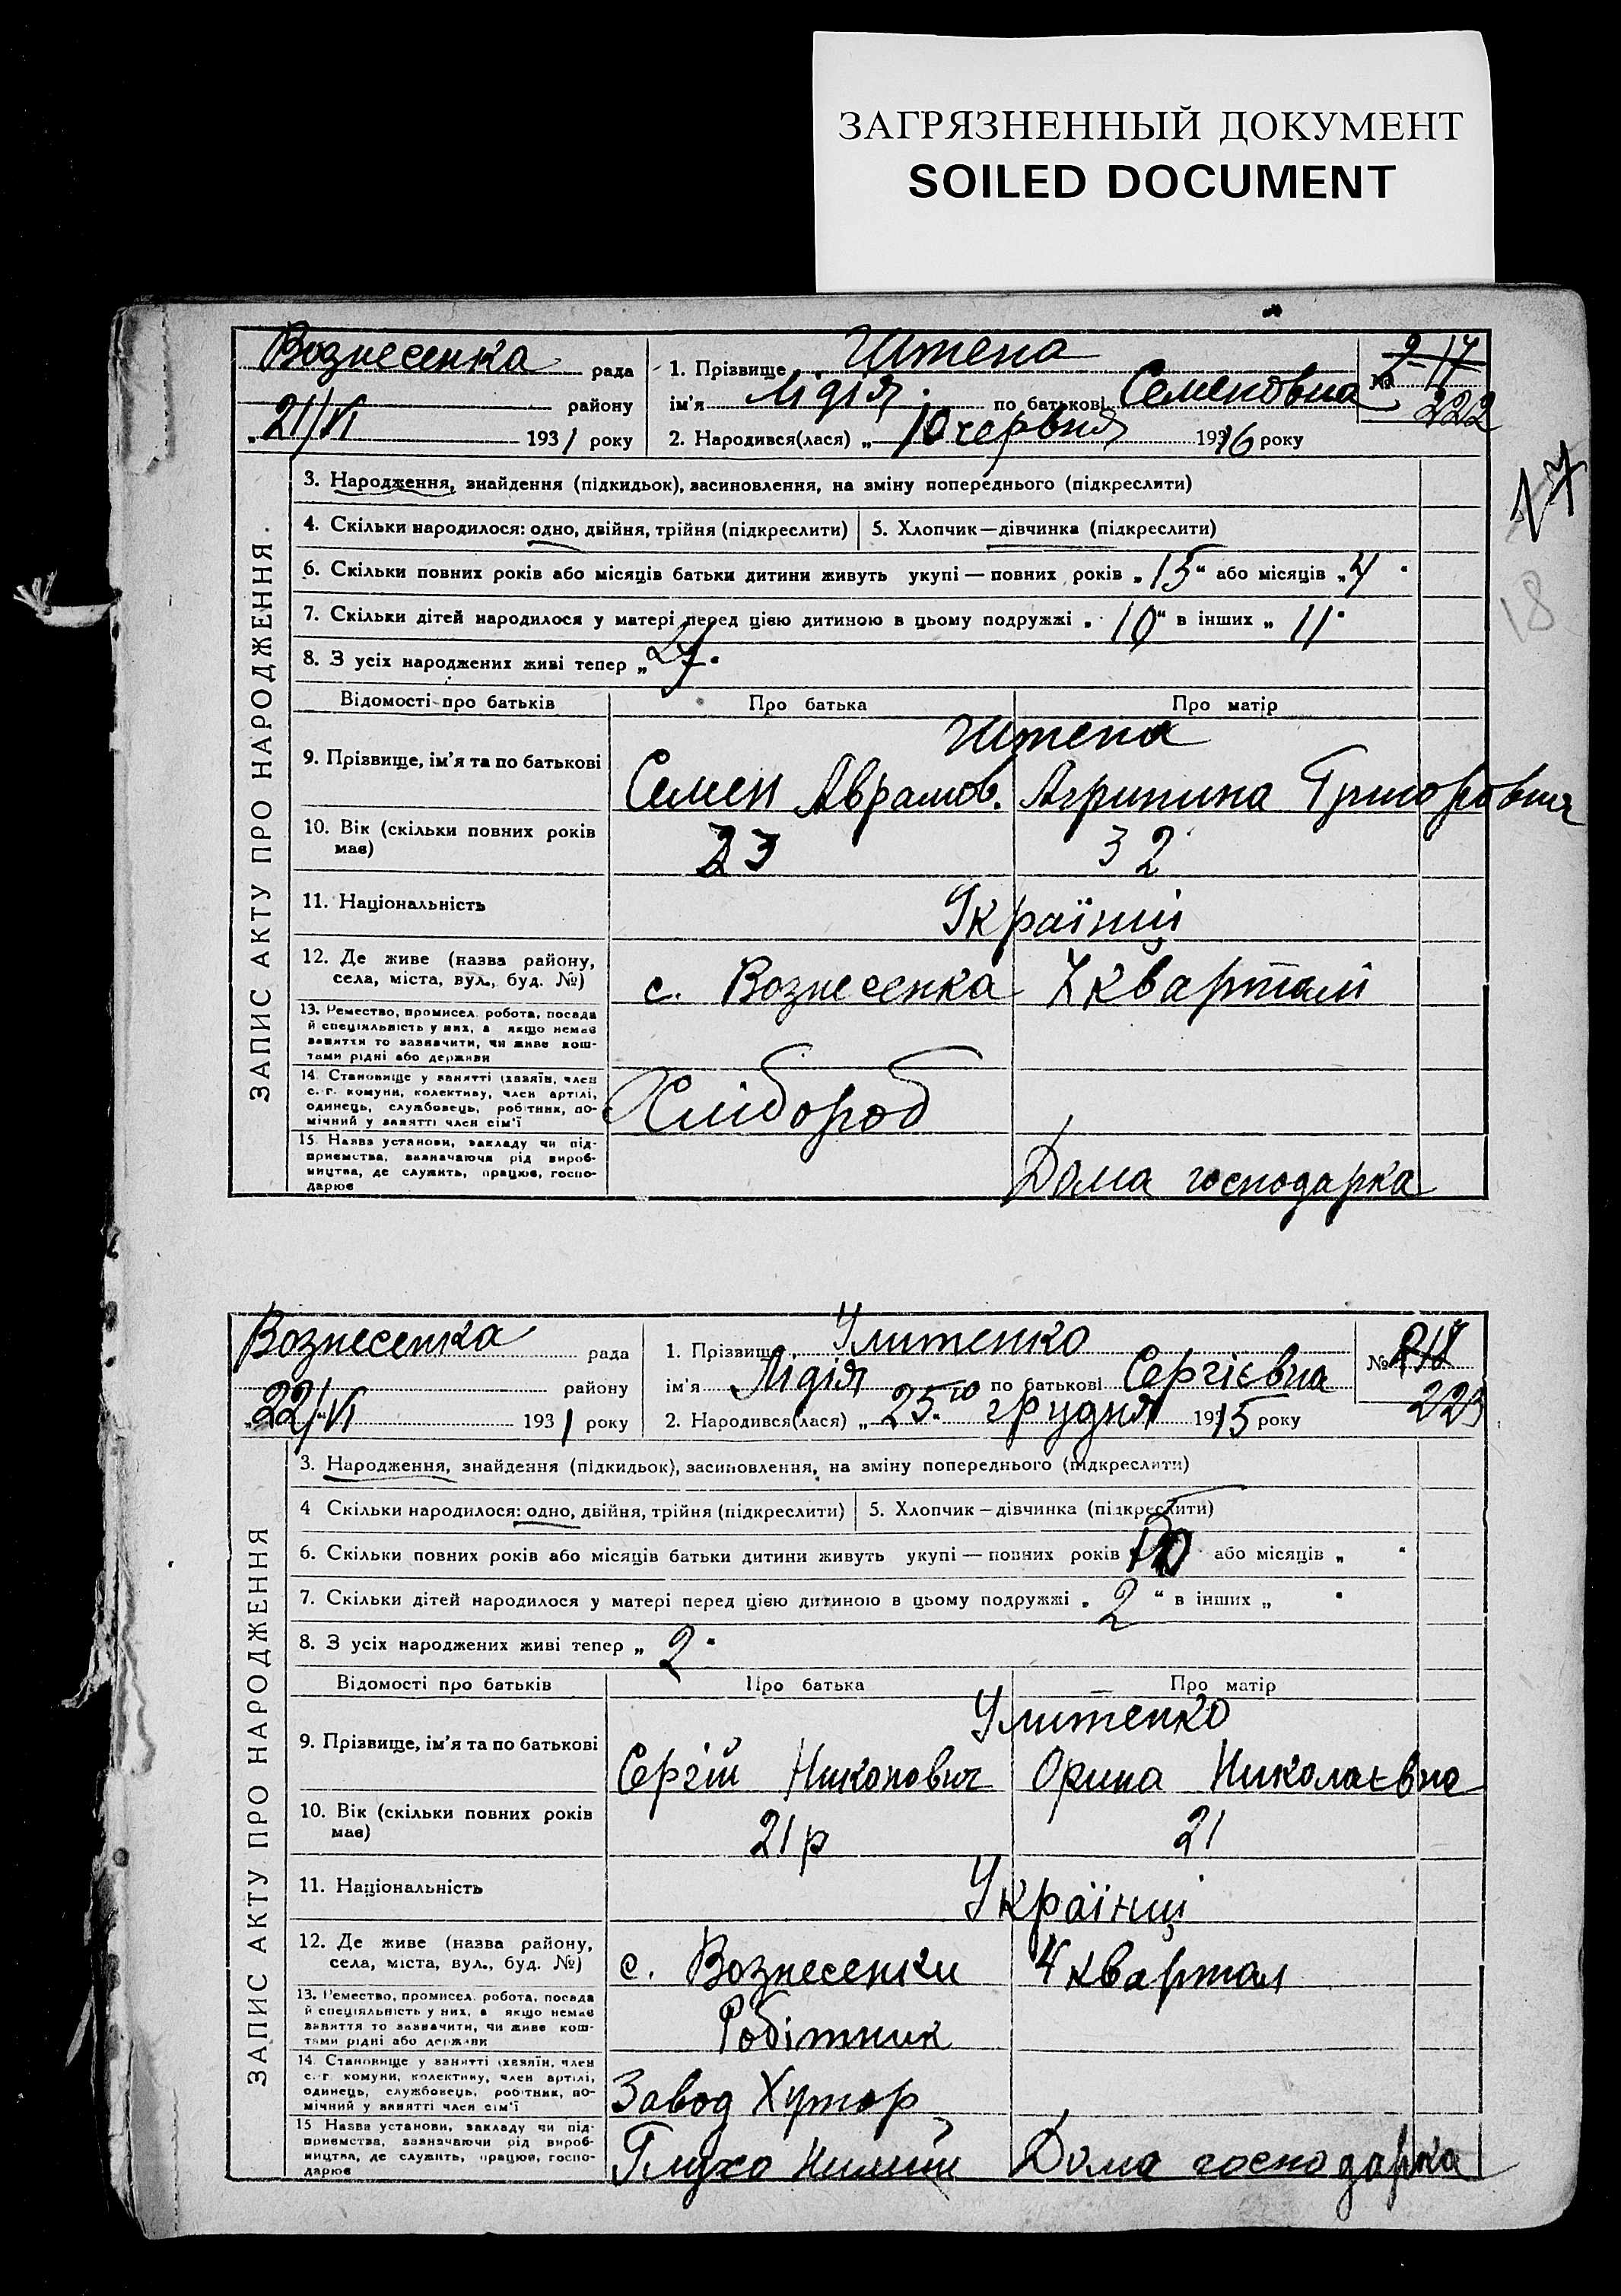 ЗАГРЯЗНЕННЫЙ ДОКУМЕНТ
SOILED DOCUMENT
Вознесенка рада
району
„21/VI 1931 року
1. Прізвище Штепа
ім'я Лідія по батькові Семеновна
2. Народився(лася) „10 червня 1916 року
№ 217
222
17
18
ЗАПИС АКТУ ПРО НАРОДЖЕННЯ.
3. Народження, знайдення (підкидьок), засиновлення, на зміну попереднього (підкреслити)
4. Скільки народилося: одно, двійня, трійня (підкреслити) 5. Хлопчик — дівчинка (підкреслити)
6. Скільки повних років або місяців батьки дитини живуть укупі — повних років „15“ або місяців „4“
7. Скільки дітей народилося у матері перед цією дитиною в цьому подружжі „10“ в інших „11“
8. З усіх народжених живі тепер „
Відомості про батьків Про батька Про матір
Штепа
9. Прізвище, ім'я та по батькові Семен Аврамов. Агрипина Григоровна
10. Вік (скільки повних років має) 23 32
11. Національність Українці
12. Де живе (назва району, села, міста, вул., буд. №) с. Вознесенка 7 квартал
13. Ремество, промисел, робота, посада й спеціяльність у них, а якщо немає заняття то зазначити, чи живе коштами рідні або держави
14. Становище у занятті (хазяїн, член с.-г. комуни, колективу, член артілі, одинець, службовець, робітник, помічний у занятті член сім'ї Хлібороб
15. Назва установи, закладу чи підприємства, зазначаючи рід виробництва, де служить, працює, господарює Дома господарка
Вознесенка рада
району
„22/VI 1931 року
1. Прізвище Улитенко
ім'я Лідія по батькові Сергієвна
2. Народився(лася) „25.го грудня 1915 року
№ 218
223
ЗАПИС АКТУ ПРО НАРОДЖЕННЯ
3. Народження, знайдення (підкидьок), засиновлення, на зміну попереднього (підкреслити)
4 Скільки народилося: одно, двійня, трійня (підкреслити) 5. Хлопчик — дівчинка (підкреслити)
6. Скільки повних років або місяців батьки дитини живуть укупі — повних років або місяців „ “
7. Скільки дітей народилося у матері перед цією дитиною в цьому подружжі „2“ в інших „ “
8. З усіх народжених живі тепер „2“
Відомості про батьків Про батька Про матір
Улитенко
9. Прізвище, ім'я та по батькові Сергій Никонович Орина Николаєвна
10. Вік (скільки повних років має) 21р 21
11. Національність Українці
12. Де живе (назва району, села, міста, вул., буд. №) с. Вознесенки 4 квартал
13. Ремество, промисел, робота, посада й спеціяльність у них, а якщо немає заняття то зазначити, чи живе коштами рідні або держави Робітник
14. Становище у занятті (хазяїн, член с.-г. комуни, колективу, член артілі, одинець, службовець, робітник, помічний у занятті член сім'ї Завод Хутор
15 Назва установи, закладу чи підприємства, зазначаючи рід виробництва, де служить, працює, господарює Дома господарка